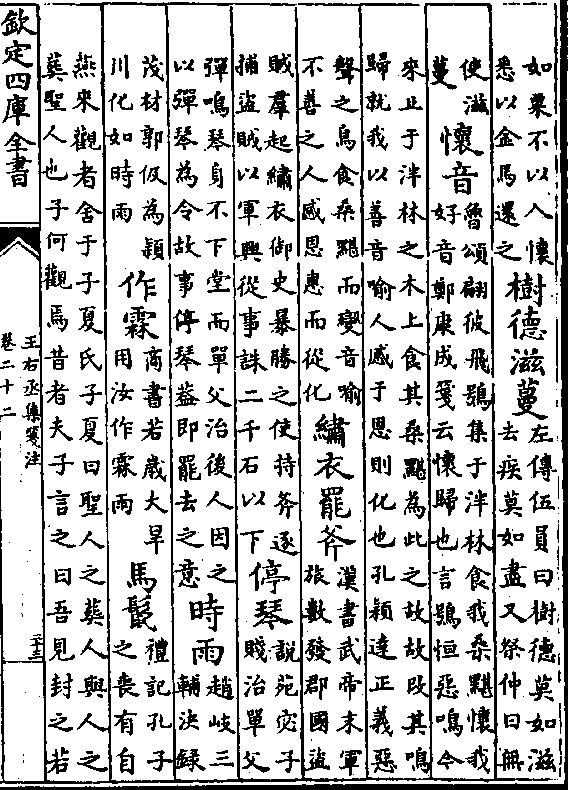 如粟不以入懷
悉以金馬還之
樹德滋蔓
左傳伍員曰樹德莫如滋
去疾莫如盡又祭仲曰無
使滋
蔓
懷音
魯頌翩彼飛鴞集于泮林食我桑黮懷我
好音鄭康成箋云懷歸也言鴞恒惡鳴今
來止于泮林之木上食其桑黮為此之故故改其鳴
歸就我以善音喻人感于恩則化也孔穎達正義惡
聲之鳥食桑黮而變音喻
不善之人感恩惠而從化
繡衣罷斧
漢書武帝末軍
旅數發郡國盜
賊羣起繡衣御史暴勝之使持斧逐
捕盜賊以軍興從事誅二千石以下
停琴
說苑宓子
賤治單父
彈鳴琴身不下堂而單父治後人因之
以彈琴為令故事停琴葢即罷去之意
時雨
趙岐三
輔決録
茂材郭伋為潁
川化如時雨
作霖
商書若歲大旱
用汝作霖雨
馬鬛
禮記孔子
之喪有自
燕來觀者舍于子夏氏子夏曰聖人之葬人與人之
葬聖人也子何觀焉昔者夫子言之曰吾見封之若
欽定四庫全書
王右丞集箋注
卷二十二
二十三